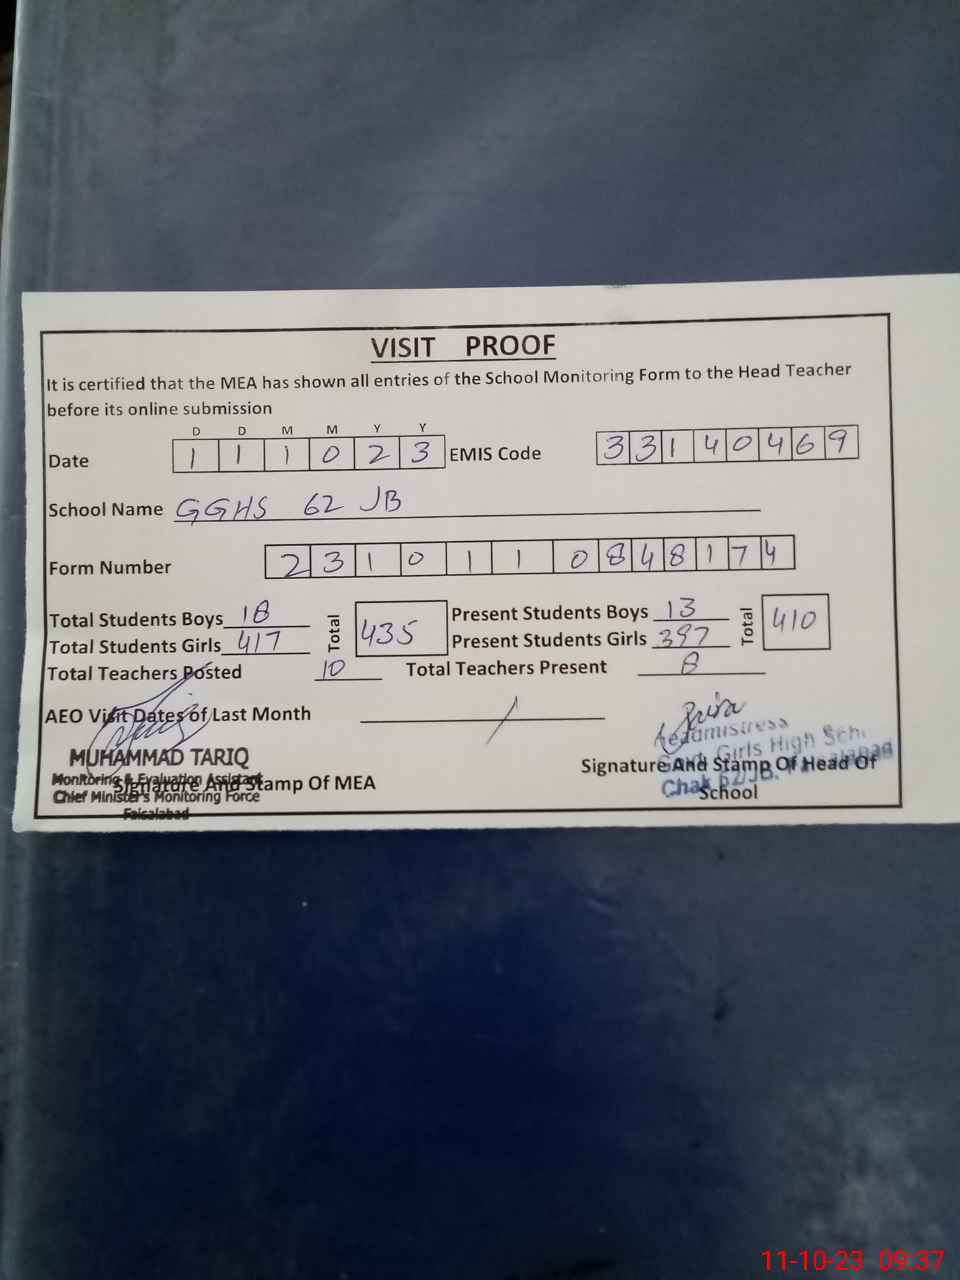 VISIT PROOF
It is certified that the MEA has shown all entries of the School Monitoring Form to the Head Teacher
before its online submission
D D M M Y Y
Date 1 1 1 0 2 3 EMIS Code 3 3 1 4 0 4 6 9
School Name GGHS 62 JB
Form Number 2 3 1 0 1 1 0 8 4 8 1 7 4
Total Students Boys 18 Total 435 Present Students Boys 13 Total 410
Total Students Girls 417 Present Students Girls 397
Total Teachers Posted 10 Total Teachers Present 8
AEO Visit Dates of Last Month /
MUHAMMAD TARIQ
Monitoring & Evaluation Assistant
Chief Minister's Monitoring Force
Faisalabad
Signature And Stamp Of MEA
Headmistress
Govt. Girls High
Chak 62/JB,
Signature And Stamp Of Head Of
School
11-10-23 09:37